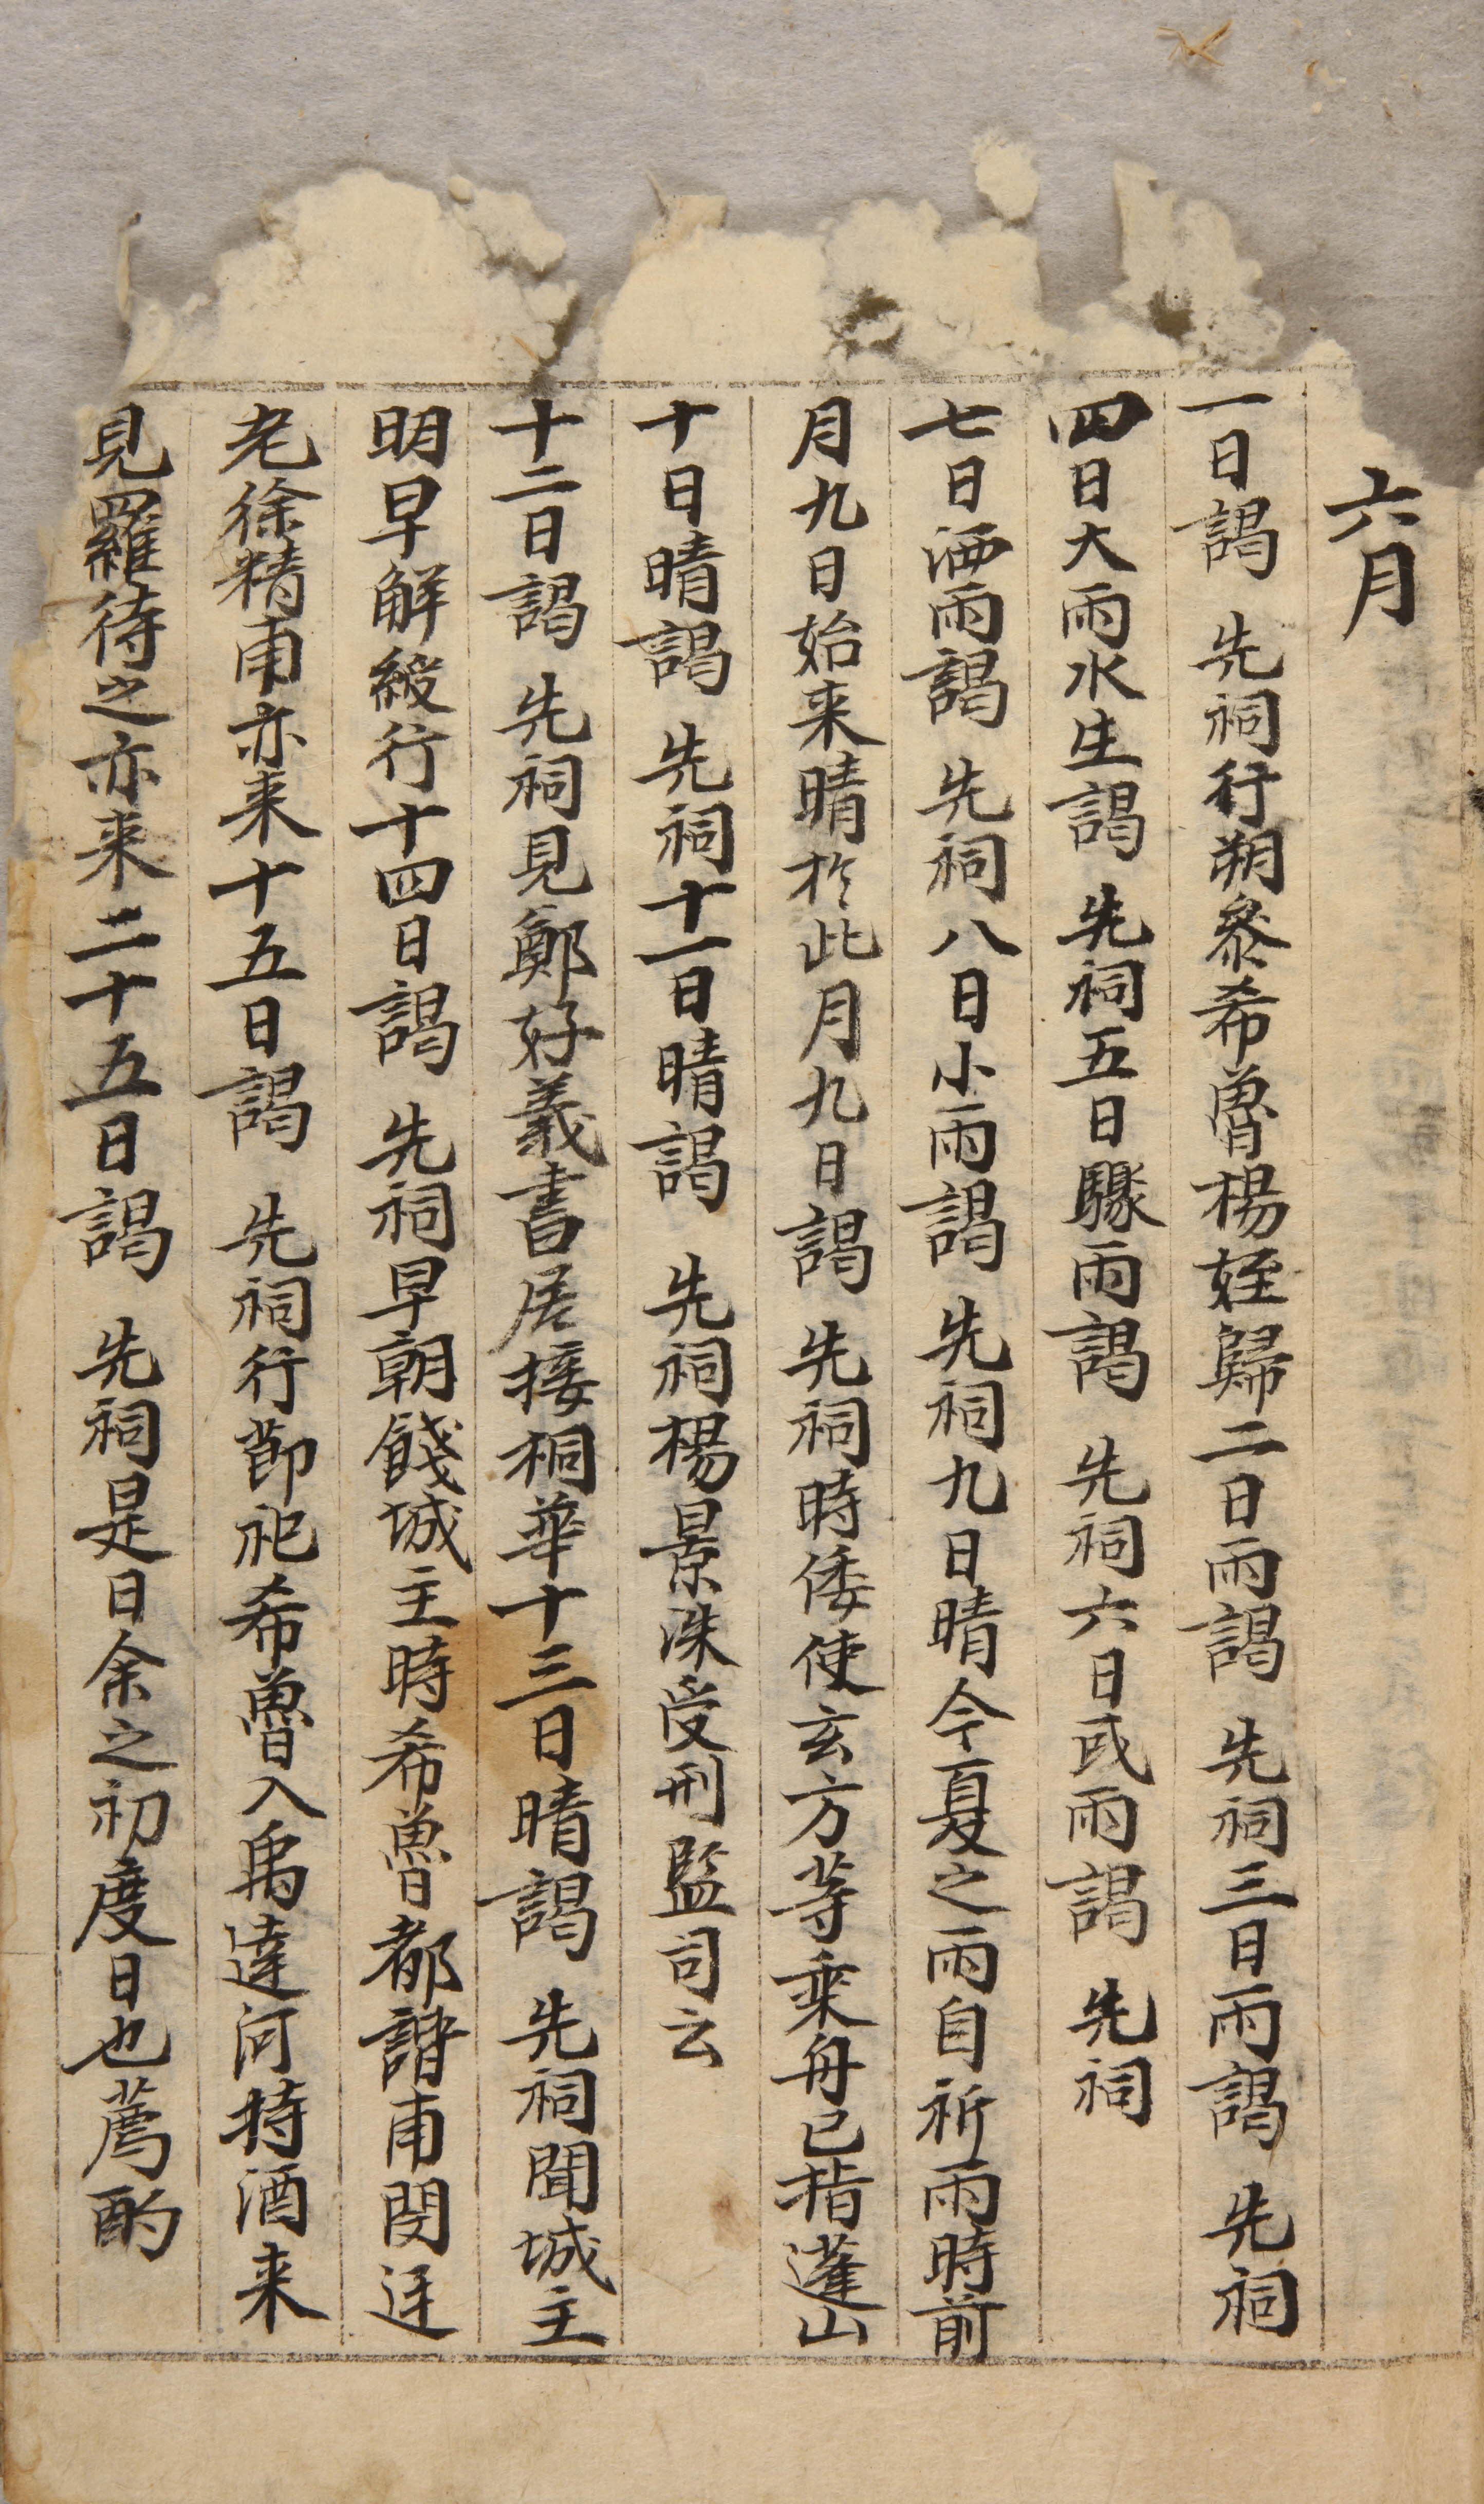 六月
一日謁 先祠行朔參希魯楊姪歸二日雨謁 先祠三日雨謁 先祠
四日大雨水生謁 先祠五日驟雨謁 先祠六日或雨謁 先祠
七日洒雨謁 先祠八日小雨謁 先祠九日晴今夏之雨自祈雨時前
月九日始来晴於此月九日謁 先祠時倭使玄方等乘舟已指蓬山
十日晴謁 先祠十一日晴謁 先祠楊景洙受刑監司云
十二日謁 先祠見鄭好義書居接桐華十三日晴謁 先祠聞城主
明早解綬行十四日謁 先祠早朝餞城主時希魯都諿甫閔廷
老徐精甫亦来十五日謁 先祠行節祀希魯入禹達河持酒来
見羅待之亦来二十五日謁 先祠是日余之初度日也薦酌